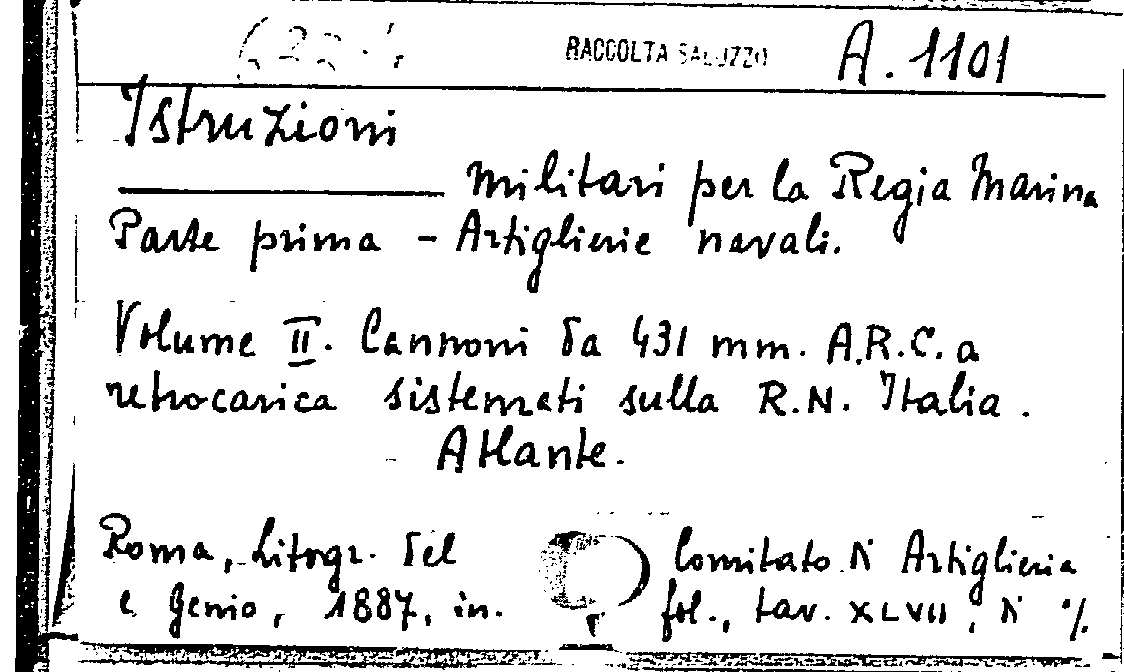 RACCOLTA SALUZZO A.1101
Istruzioni
militari per la Regia Marina
Parte prima - Artiglierie navali.
Volume II. Cannoni da 431 mm. A.R.C. a
retrocarica sistemati sulla R.N. Italia.
Atlante.
Roma, Litogr. del Comitato di Artiglieria
e Genio, 1887, in. fol., tav. XLVII, di %